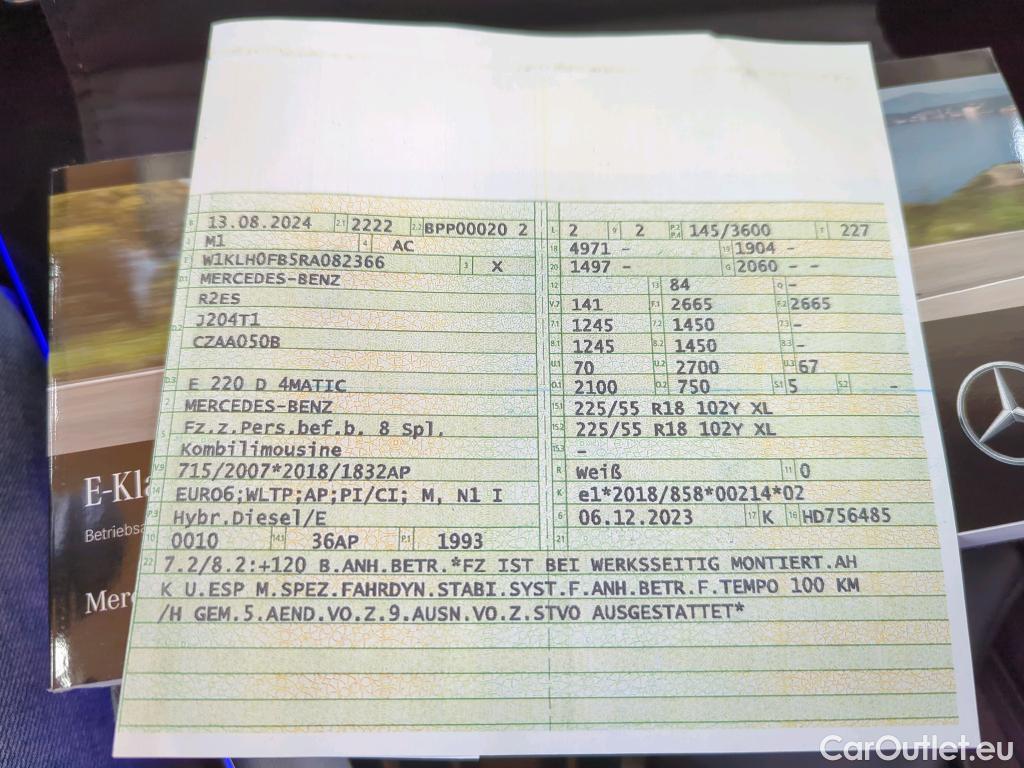 B 13.08.2024 2.1 2222 2.2 BPP00020 2
J M1 4 AC
E W1KLH0FB5RA082366 3 X
D.1 MERCEDES-BENZ
R2ES
D.2 J204T1
CZAA050B
D.3 E 220 D 4MATIC
2 MERCEDES-BENZ
5 Fz.z.Pers.bef.b. 8 Spl.
Kombilimousine
V.9 715/2007*2018/1832AP
14 EURO6;WLTP;AP;PI/CI; M, N1 I
P.3 Hybr.Diesel/E
10 0010 14.1 36AP P.1 1993
L 2 9 2 P.2 P.4 145/3600 T 227
18 4971 – 19 1904 –
20 1497 – G 2060 – –
12 13 84 Q –
V.7 141 F.1 2665 F.2 2665
7.1 1245 7.2 1450 7.3 –
8.1 1245 8.2 1450 8.3 –
U.1 70 U.2 2700 U.3 67
O.1 2100 O.2 750 S.1 5 S.2 –
15.1 225/55 R18 102Y XL
15.2 225/55 R18 102Y XL
15.3 –
R weiß 11 0
K e1*2018/858*00214*02
6 06.12.2023 17 K 16 HD756485
21
22 7.2/8.2:+120 B.ANH.BETR.*FZ IST BEI WERKSSEITIG MONTIERT.AH
K U.ESP M.SPEZ.FAHRDYN.STABI.SYST.F.ANH.BETR.F.TEMPO 100 KM
/H GEM.5.AEND.VO.Z.9.AUSN.VO.Z.STVO AUSGESTATTET*
E-Kla
Betriebsa
Merc
CarOutlet.eu